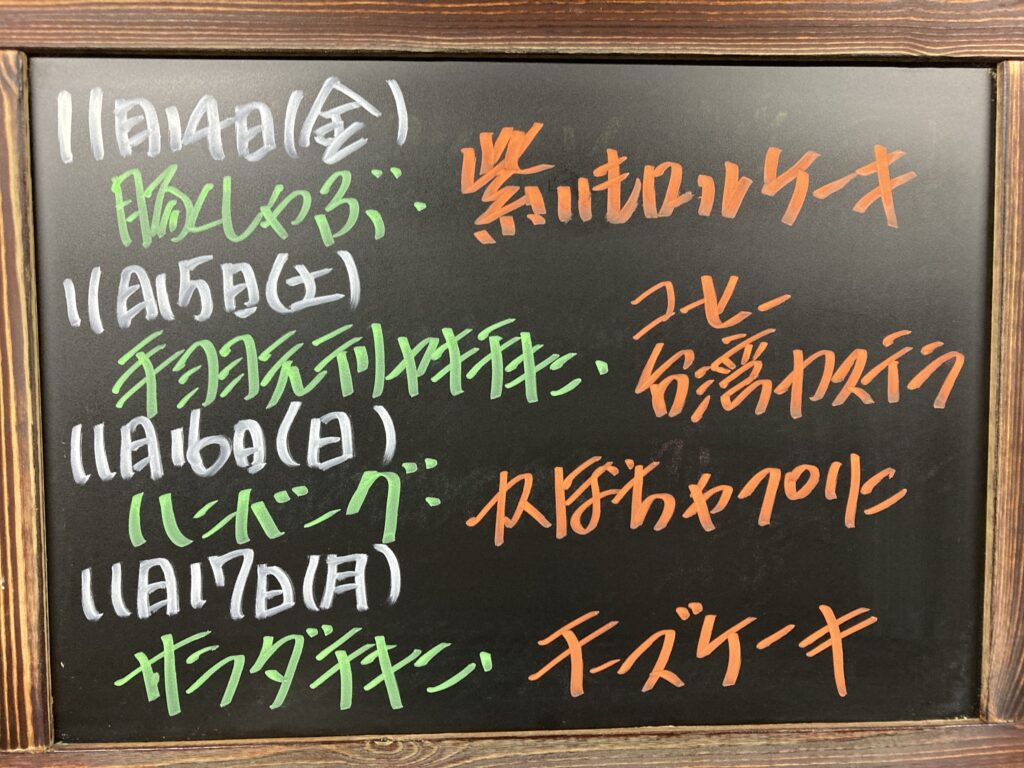 11月14日(金)
豚しゃぶ・紫いもロールケーキ
11月15日(土)
手羽元テリヤキチキン・コーヒー台湾カステラ
11月16日(日)
ハンバーグ・かぼちゃプリン
11月17日(月)
サラダチキン・チーズケーキ